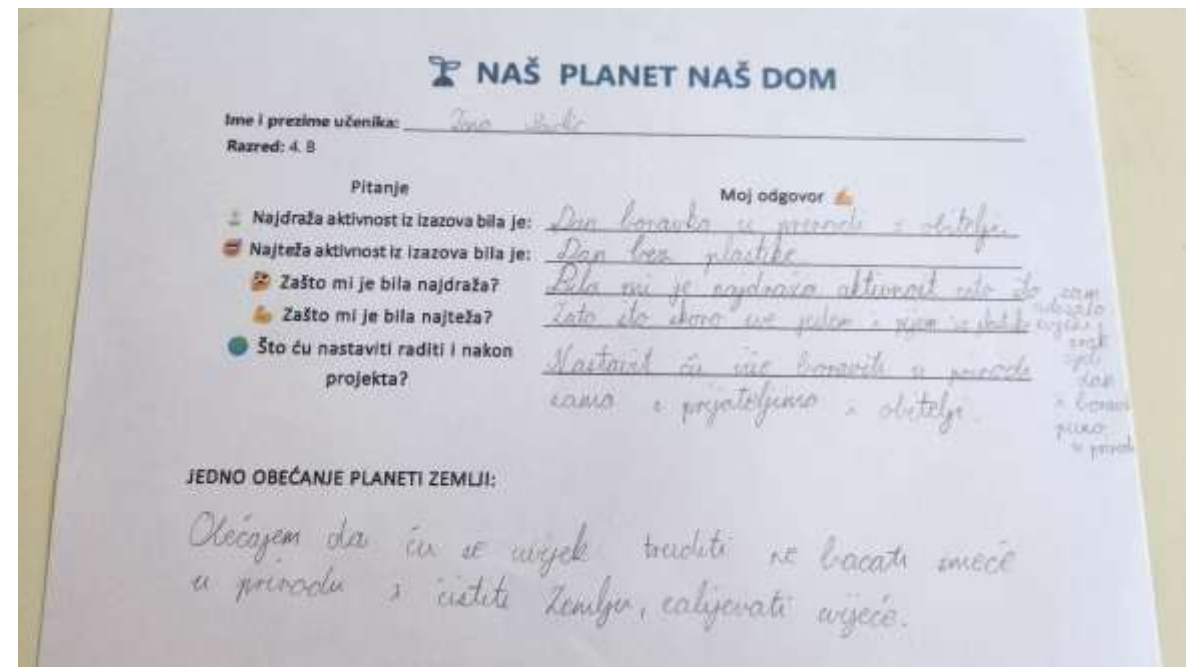 NAŠ PLANET NAŠ DOM
Ime i prezime učenika:
Razred: 4. B
Pitanje Moj odgovor
Najdraža aktivnost iz izazova bila je: Dan boravka u prirodi s obitelji.
Najteža aktivnost iz izazova bila je: Dan bez plastike.
Zašto mi je bila najdraža? Bila mi je najdraža aktivnost zato što sam
Zašto mi je bila najteža? Zato što skoro sve jedem i pijem iz plastike
zrak
cijeli
dan
puno
u prirodi
Što ću nastaviti raditi i nakon
projekta? Nastavit ću više boraviti u prirodi
s prijateljima i obitelji.
JEDNO OBEĆANJE PLANETI ZEMLJI:
Obećajem da ću se uvijek truditi ne bacati smeće
u prirodu i čistiti Zemlju, zalijevati cvijeće.